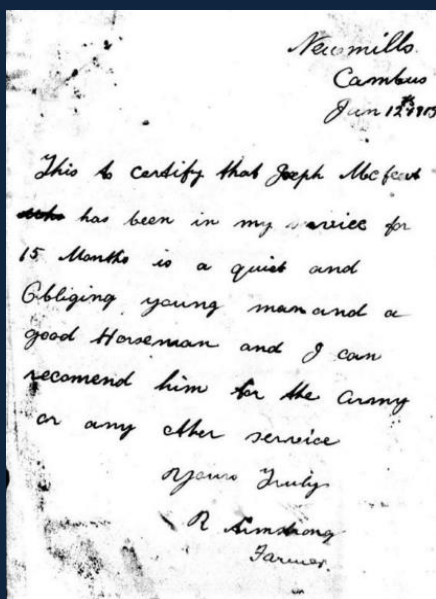 Newmills.
Cambus
Jan 12th
This to certify that Joseph
has been in my service for
15 Months is a quiet and
Obliging young man and a
good Horseman and I can
recomend him for the Army
or any other service
Yours Truly
R Armstrong
Farmer.